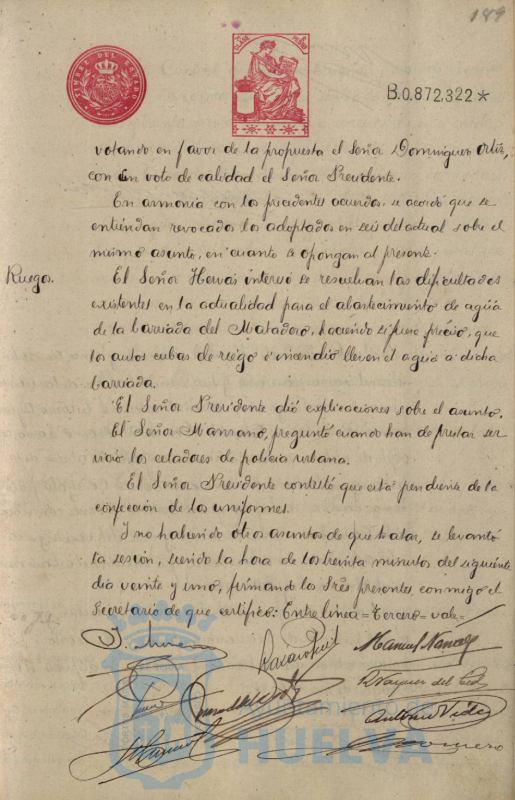 189
TIMBRE DEL ESTADO
B.0.872,322*
votando en favor de la propuesta el Señor Dominguez Ortiz,
con un voto de calidad el Señor Presidente.
En armonia con los precidentes acuerdos, se acordó que se
entiendan revocado los adoptados en seis del actual sobre el
mismo asunto, en cuanto se opongan al presente.
Ruego.
El Señor Hervás interesó se resuelvan las dificultades
existentes en la actualidad para el abastecimiento de agua
de la barriada del Matadero, haciendo si fuese preciso, que
los autos cubas de riego é incendio lleven el agua a dicha
barriada.
El Señor Presidente dió explicaciones sobre el asunto.
El Señor Manzano, preguntó cuando han de prestar ser
vicio los celadores de policia urbana.
El Señor Presidente contestó que está pendiente de la
confección de los uniformes.
Y no habiendo otros asuntos de que tratar, se levantó
la sesión, siendo la hora de los treinta minutos del siguiente
dia veinte y uno, firmando los Srés presentes, conmigo el
Secretario de que certifico: Entre linea = tercero = vale =
Manuel
Vazquez del
Antonio
Ayuntamiento de
HUELVA